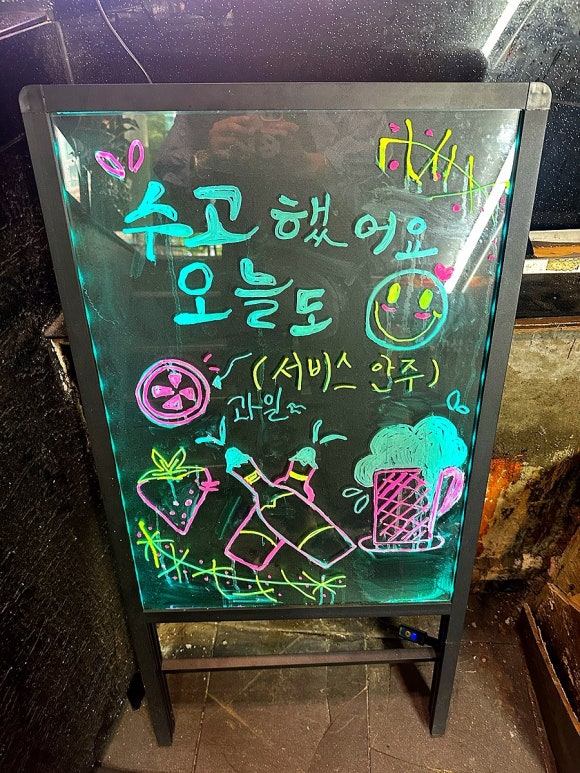 수고 했어요
오늘도
(서비스 안주)
과일~